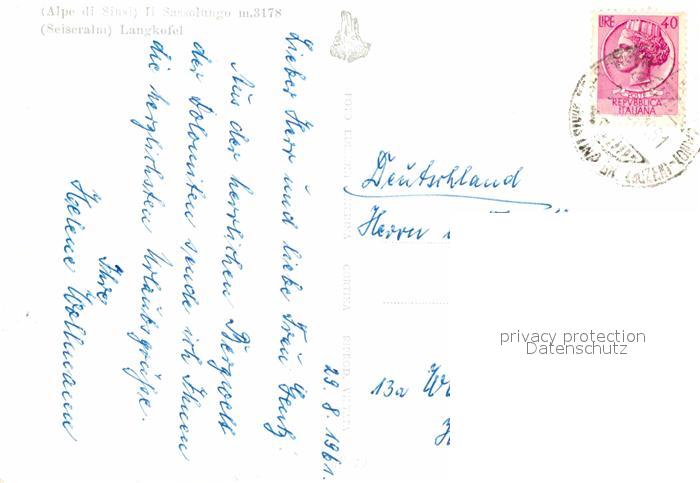 (Alpe di Siusi) Il Sassolungo m.3178
(Seiseralm) Langkofel
29. 8. 1961.
Lieber Herr und liebe Frau
Aus der herrlichen Bergwelt
der Dolomiten sende ich Ihnen
die herzlichsten Urlaubsgrüße.
Ihre
Helene Wollmann
LIRE 40
POSTE
REPVBBLICA
ITALIANA
Deutschland
Herrn
13a
privacy protection
Datenschutz